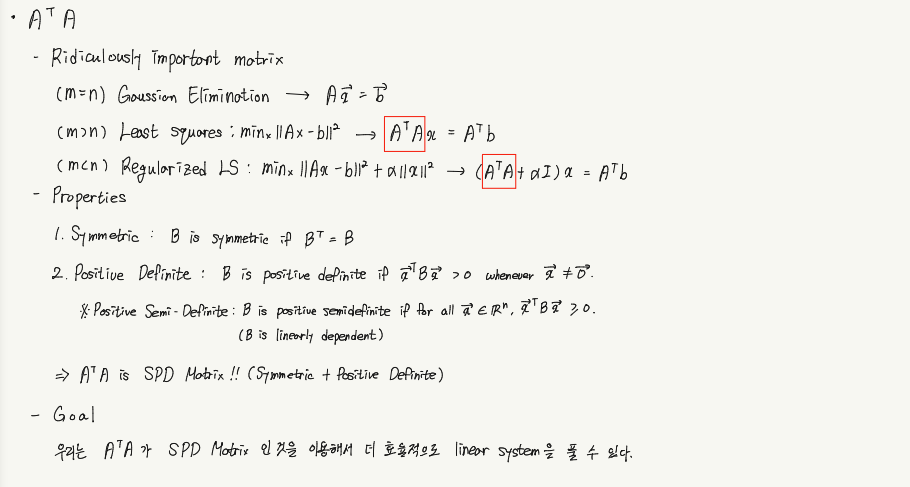 • AᵀA
- Ridiculously important matrix
(m=n) Gaussian Elimination → Ax⃗ = b⃗
(m>n) Least squares : minₓ ||Ax - b||² → AᵀAx = Aᵀb
(m<n) Regularized LS : minₓ ||Ax - b||² + α||x||² → (AᵀA + αI)x = Aᵀb
- Properties
1. Symmetric : B is symmetric if Bᵀ = B
2. Positive Definite : B is positive definite if x⃗ᵀBx⃗ > 0 whenever x⃗ ≠ 0⃗.
※ Positive Semi-Definite : B is positive semidefinite if for all x⃗ ∈ ℝⁿ, x⃗ᵀBx⃗ ≥ 0.
(B is linearly dependent)
⇒ AᵀA is SPD Matrix!! (Symmetric + Positive Definite)
- Goal
우리는 AᵀA가 SPD Matrix 인 것을 이용해서 더 효율적으로 linear system을 풀 수 있다.